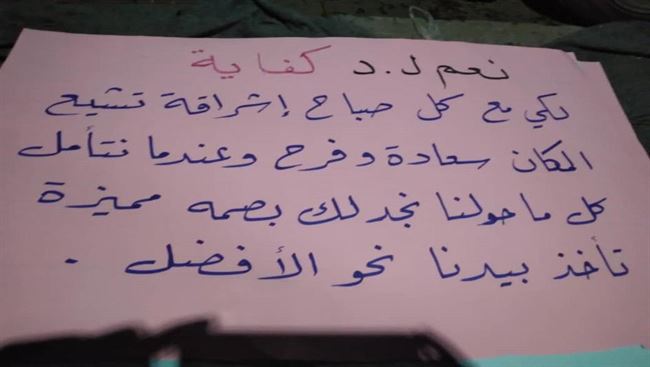 نعم لـ د. كفاية
لكي مع كل صباح إشراقة تشيع
المكان سعادة وفرح وعندما نتأمل
كل ما حولنا نجد لك بصمه مميزة
تأخذ بيدنا نحو الأفضل .